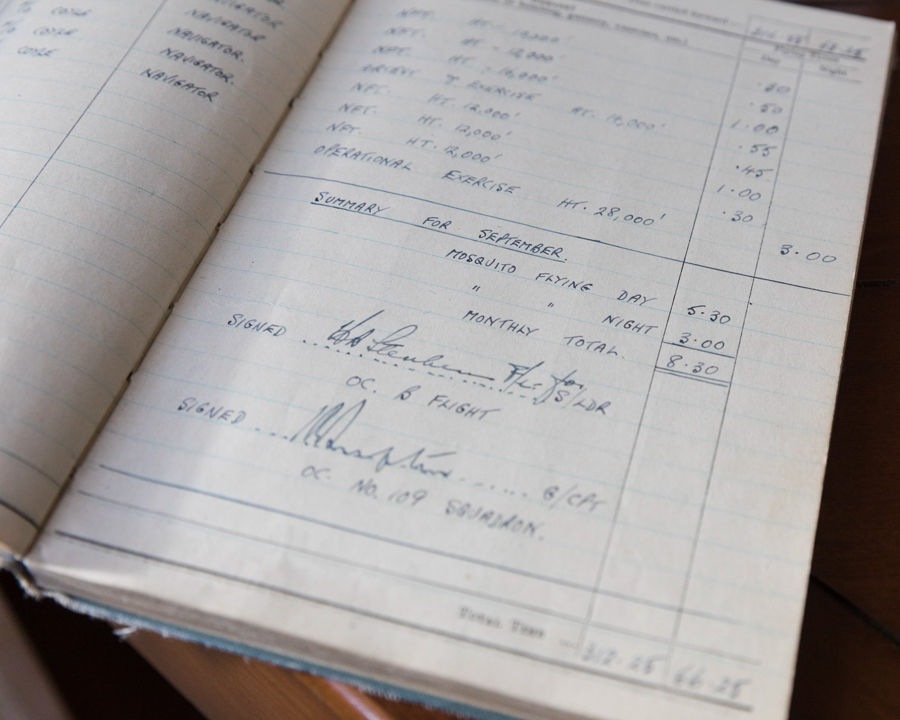 % COZLE
% COZLE
COZLE
NAVIGATOR
NAVIGATOR
NAVIGATOR.
NAVIGATOR.
NAVIGATOR
NFT. HT - 10,000'
NFT. HT - 12,000' .50
NFT. HT - 12,000' 1.00
EXERCISE HT. 14,000' .55
NFT. HT. 12,000' .45
NFT. HT. 12,000' 1.00
NFT. HT. 12,000' .30
OPERATIONAL EXERCISE HT. 28,000' 3.00
SUMMARY FOR SEPTEMBER.
MOSQUITO FLYING DAY 5.30
" " NIGHT 3.00
MONTHLY TOTAL. 8.30
SIGNED S/LDR
OC. B FLIGHT
SIGNED G/CPT
OC. NO. 109 SQUADRON.
Total Time 312.25 66.25